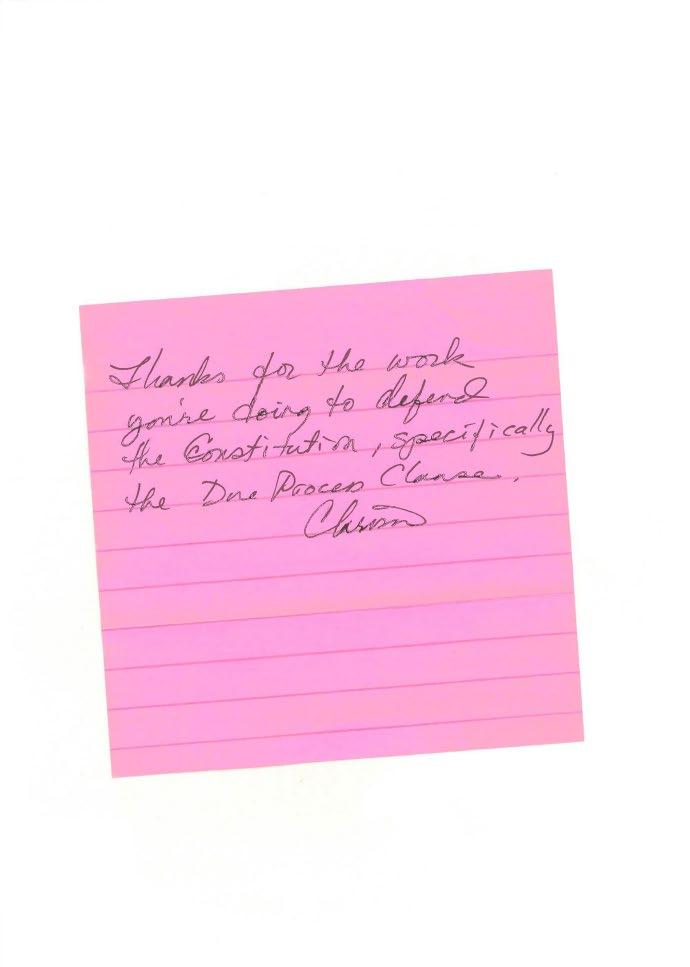 Thanks for the work
you're doing to defend
the Constitution, specifically
the Due Process Clause.